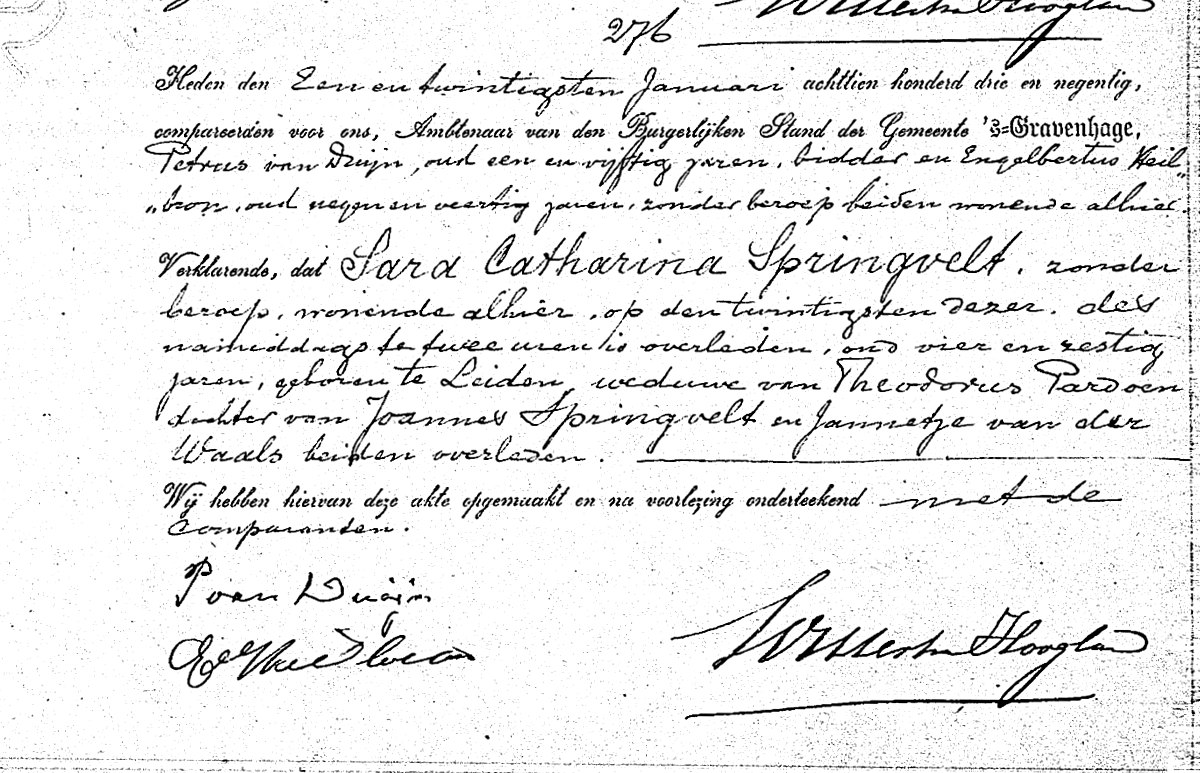 276
Heden den Een en twintigsten Januari achttien honderd drie en negentig,
compareerden voor ons, Ambtenaar van den Burgerlijken Stand der Gemeente 's=Gravenhage,
Petrus van Duijn, oud een en vijftig jaren, bidder en Engelbertus Heil„
„bron, oud negen en veertig jaren, zonder beroep beiden wonende alhier.
Verklarende, dat Sara Catharina Springvelt, zonder
beroep, wonende alhier, op den twintigsten dezer, des
namiddags te twee uren is overleden, oud vier en zestig
jaren, geboren te Leiden, weduwe van Theodorus Pardoen
dochter van Joannes Springvelt en Jannetje van der
Waals beiden overleden.
Wij hebben hiervan deze akte opgemaakt en na voorlezing onderteekend met de
Comparanten.
P van Duijn
E Heilbron